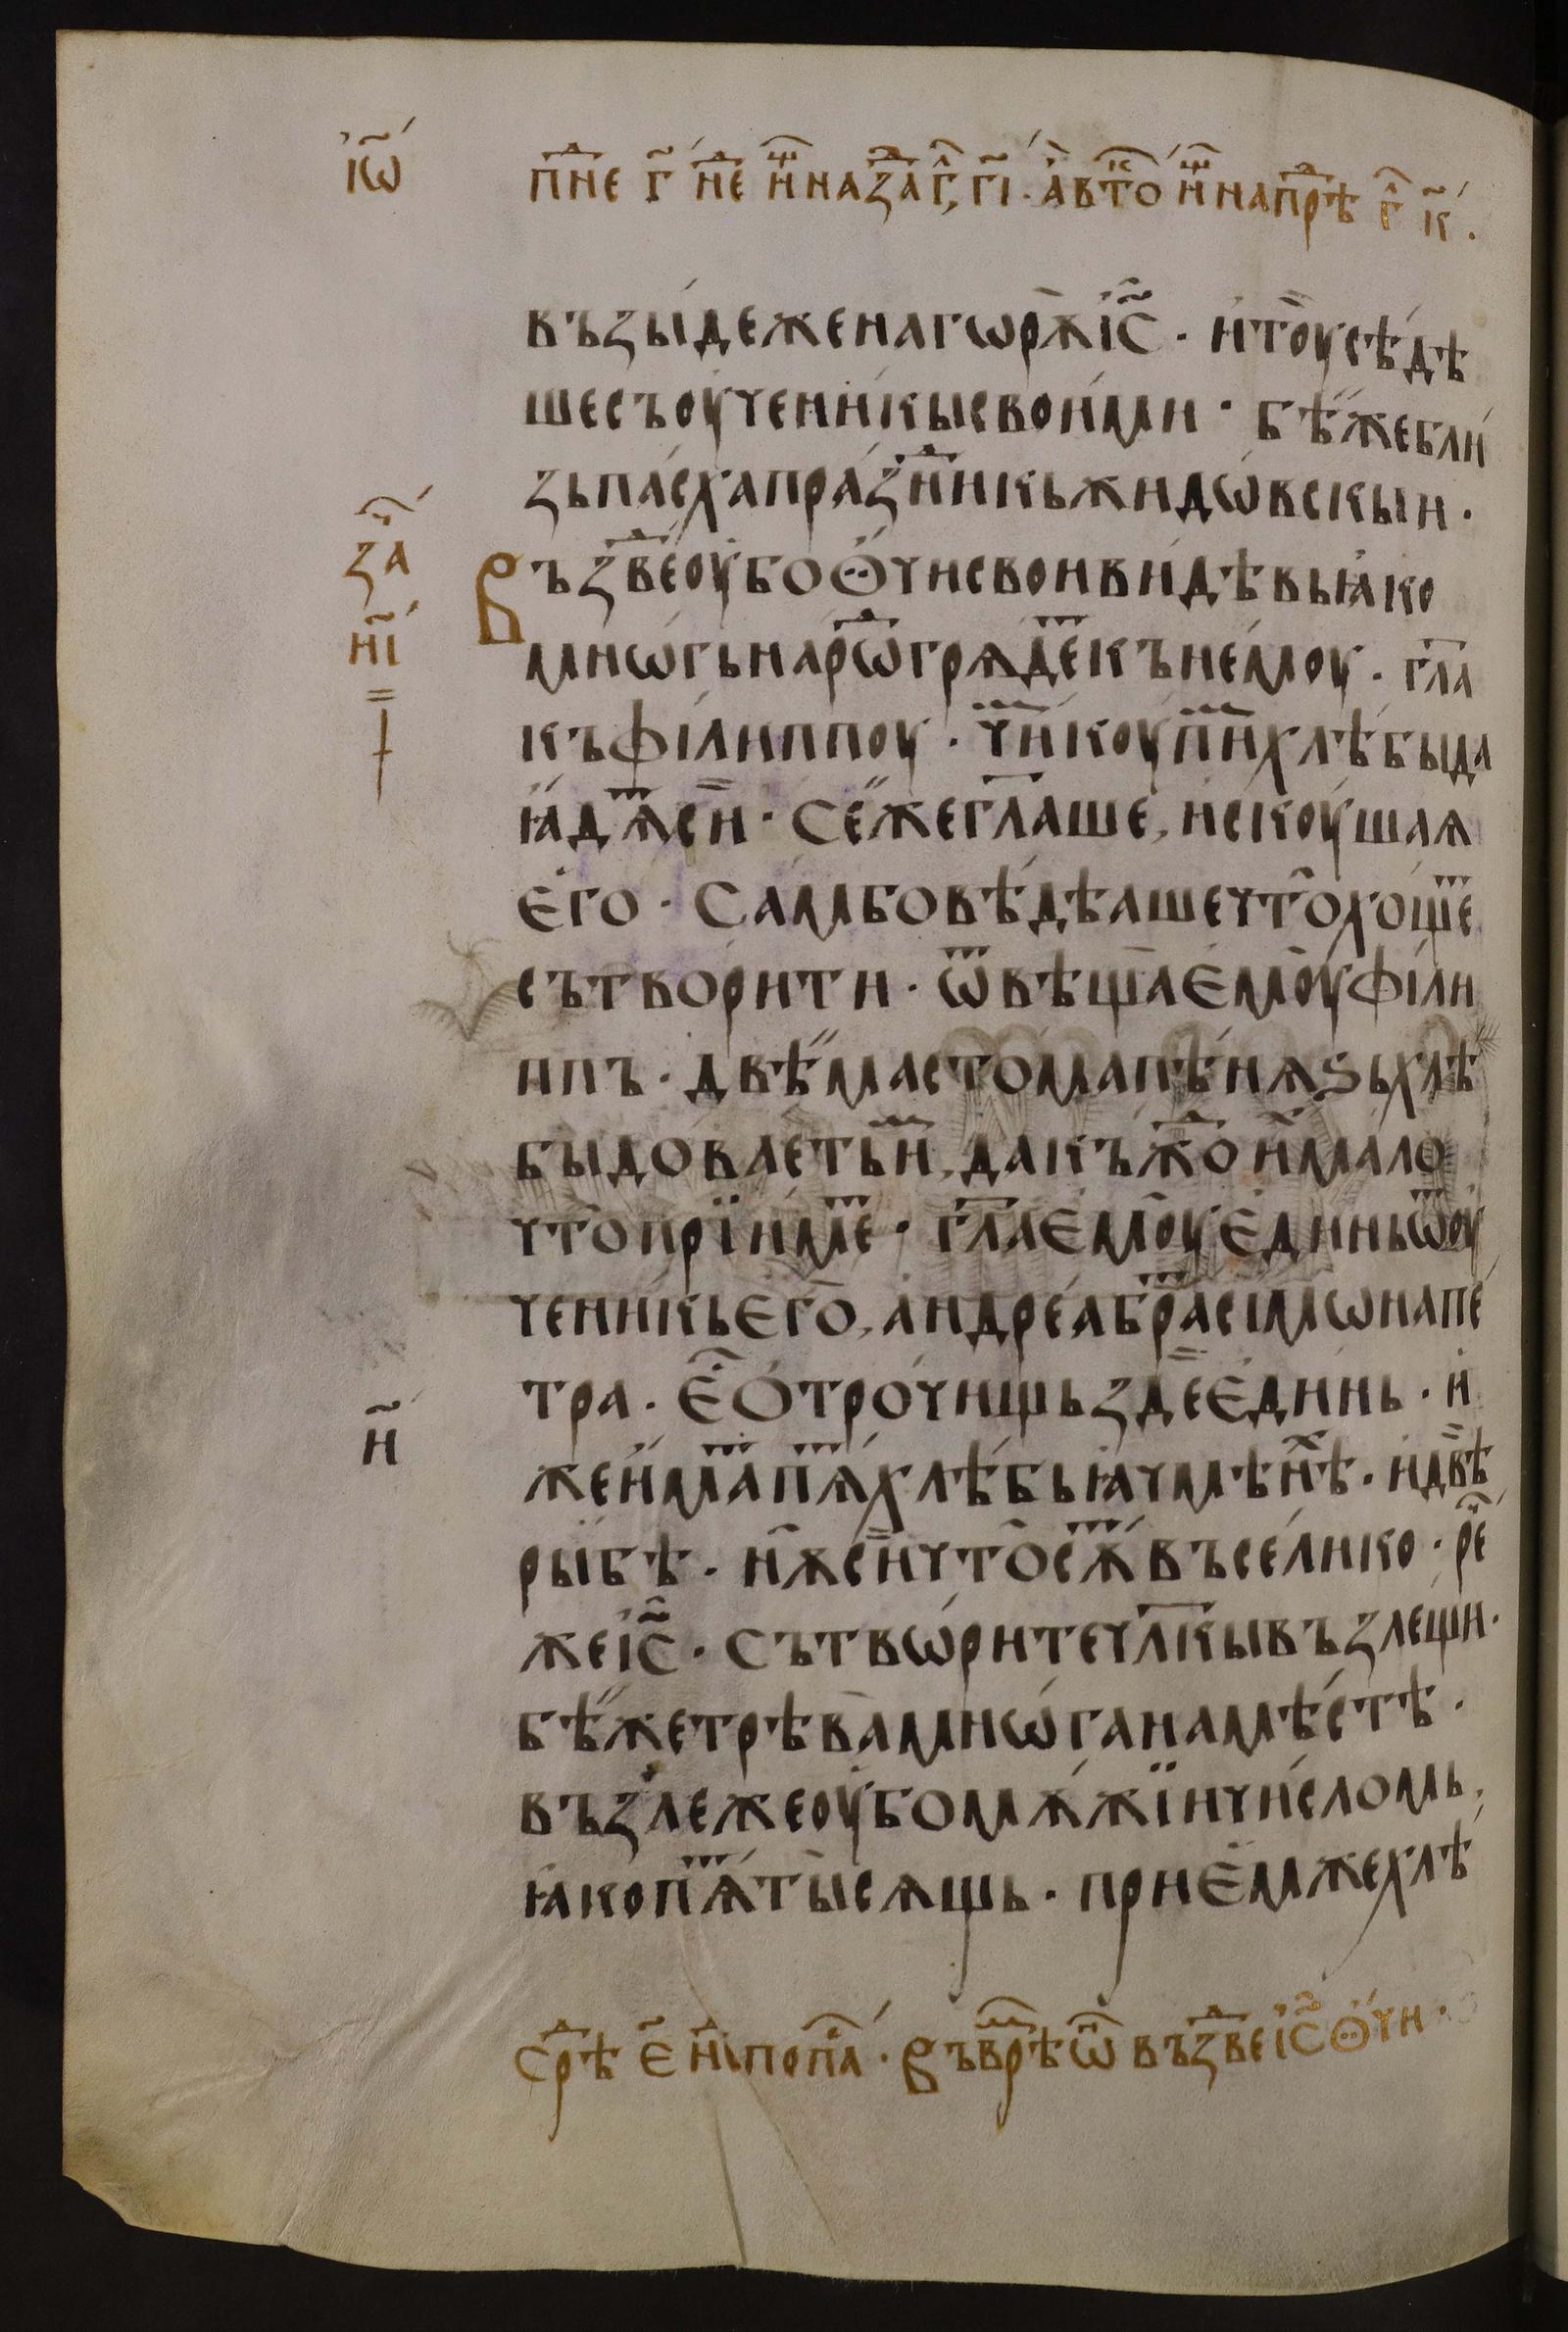 і҆ѡ҃ пⷣне г҃ нⷣе н҆ щⷩ҇ на заⷱ г҃, гі҃. а҆ в тⷦо н҆ щⷩ҇ на прⷣѣ г҃ к҃.
възы́дежена гѡрѫ̀ і҆с҃. и҆тоу̀ сѣ́дѣ
шесъ оу҆чени́кысвои́ми. бѣ́жебли́
зьпа́сха пра́зⷣникьжидѡ́вскыи.
за҃ Въ зⷣвеоу҆бо ѻ҆́чисвои ви́дѣвь ꙗ҆́ко
н҃і мнѡ́гьнарѡⷣ грѧдеⷮкънемоу. гл҃а
къфі́липпоу. чиⷨкоу́пиⷨхлѣ́быда
ꙗ҆дѧⷮ сі́и. Се́жегл҃аше, и҆скоу́шаѧ
е҆го. Са́мбовѣ́дѣашечто̀хо́щеⷮ
сътвори́ти. ѿвѣща̀е҆моу̀філи
ппъ. двѣ́ма стома пѣ́нѧѕьхлѣ
быдовлѣетьиⷨ, да къжⷣо и҆ⷯмало
что̀прїи́меⷮ. гл҃ае҆моу̀е҆ди́нь ѿоу҆
чени́кье҆го̀, а҆ндре́абраⷮсі́мѡнапе́
тра. Е҆ⷭ ѻ҆тро́чищьздѐе҆ди́нь. и҆
н҃ жеи҆́маⷮпѧⷮхлѣ́бь ꙗ҆чмѣнⷩѣ. и҆двѣ̀
ры́бѣ. нѫ̀сі́ичто̀сѫⷮвъсе́лико. реⷱ
жеі҆с҃. Сътвѡ́ритечл҃кывъзлещи.
бѣ́жетрѣва̀мнѡ́гана мѣ́стѣ.
възлежеоу҆бомѫ́жїичи́сломь,
ꙗ҆́ко пѧⷮты́сѧщь. прие҆́мжехлѣ
Срⷣѣ е҃ нⷣі по паⷭ. Въ врⷨѣ ѡⷩ възⷣве і҆с҃ ѻ҆́чи.